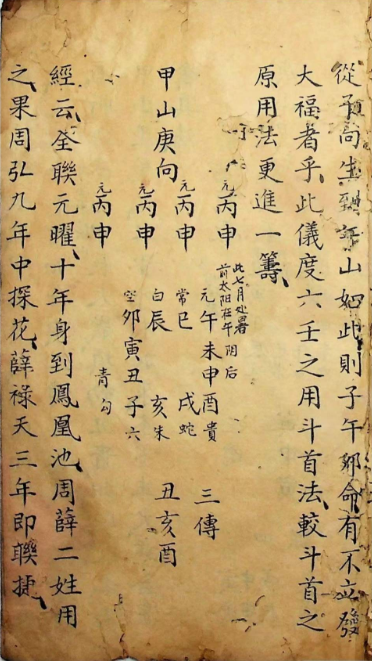 從子向生到午山如此則子午卯命有不立發
大福者乎此儀度六壬之用斗首法較斗首之
原用法更進一籌
元丙申
此七月处暑
前太阳在午 阴后
元午未申酉貴
三傳
元丙申
常巳 戌蛇
甲山庚向
白辰 亥朱
丑亥酉
元丙申
空卯寅丑子六
元丙申
青勾
經云荃聯元曜十年身到鳳凰池周薛二姓用
之果周弘九年中探花薛祿天三年即聯捷